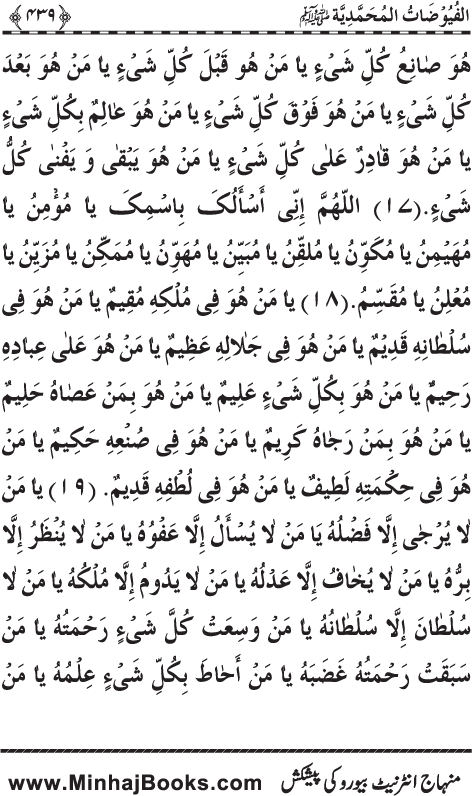 الفُيُوْضَاتُ المُحَمَّدِيَّة ﷺ ﴿٤٣٩﴾
هُوَ صَانِعُ كُلِّ شَىْءٍ يا مَنْ هُو قَبْلَ كُلِّ شَىْءٍ يا مَنْ هُوَ بَعْدَ
كُلِّ شَىْءٍ يا مَنْ هُوَ فَوْقَ كُلِّ شَىْءٍ يا مَنْ هُوَ عَالِمٌ بِكُلِّ شَىْءٍ
يا مَنْ هُوَ قادِرٌ عَلى كُلِّ شَىْءٍ يا مَنْ هُوَ يَبْقى وَ يَفْنى كُلُّ
شَىْءٍ. (١٧) اللّهُمَّ إِنِّى أَسْأَلُکَ بِاسْمِکَ يا مُؤْمِنُ يا
مُهَيْمِنُ يا مُكَوِّنُ يا مُلقِّنُ يا مُبَيِّنُ يا مُهَوِّنُ يا مُمَكِّنُ يا مُزَيِّنُ يا
مُعْلِنُ يا مُقَسِّمُ. (١٨) يا مَنْ هُوَ فِى مُلْكِهِ مُقِيمٌ يا مَنْ هُوَ فِى
سُلْطانِهِ قَدِيْمٌ يا مَنْ هُوَ فِى جَلالِهِ عَظِيمٌ يا مَنْ هُوَ عَلى عِبادِهِ
رَحِيمٌ يا مَنْ هُوَ بِكُلِّ شَىْءٍ عَلِيمٌ يا مَنْ هُوَ بِمَنْ عَصَاهُ حَلِيمٌ
يا مَنْ هُوَ بِمَنْ رَجَاهُ كَرِيمٌ يا مَنْ هُوَ فِى صُنْعِهِ حَكِيمٌ يا مَنْ
هُوَ فِى حِكْمَتِهِ لَطِيفٌ يا مَنْ هُوَ فِى لُطْفِهِ قَدِيمٌ. (١٩) يا مَنْ
لا يُرْجى إِلَّا فَضْلُهُ يَا مَنْ لا يُسْأَلُ إِلَّا عَفْوُهُ يا مَنْ لا يُنْظَرُ إِلَّا
بِرُّهُ يا مَنْ لا يُخافُ إِلَّا عَدْلُهُ يا مَنْ لا يَدُومُ إِلَّا مُلْكُهُ يا مَنْ لا
سُلْطانَ إِلَّا سُلْطانُهُ يا مَنْ وَسِعَتْ كُلَّ شَىْءٍ رَحْمَتُهُ يا مَنْ
سَبَقَتْ رَحْمَتُهُ غَضَبَهُ يا مَنْ أَحَاطَ بِكُلِّ شَىْءٍ عِلْمُهُ يا مَنْ
منہاج انٹرنیٹ بیورو کی پیشکش www.MinhajBooks.com